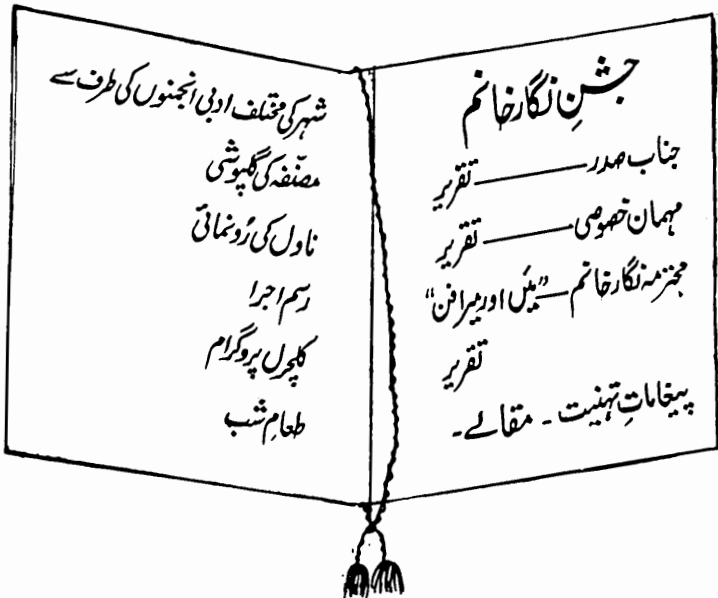 جشنِ نگار خانم
جناب صدر ——— تقریر
مہمان خصوصی ——— تقریر
محترمہ نگار خانم — ”میں اور میرا فن“
تقریر
پیغاماتِ تہنیت ۔ مقالے ۔
شہر کی مختلف ادبی انجمنوں کی طرف سے
مصنّفہ کی گلپوشی
ناول کی رُونمائی
رسم اجرا
کلچرل پروگرام
طعامِ شب